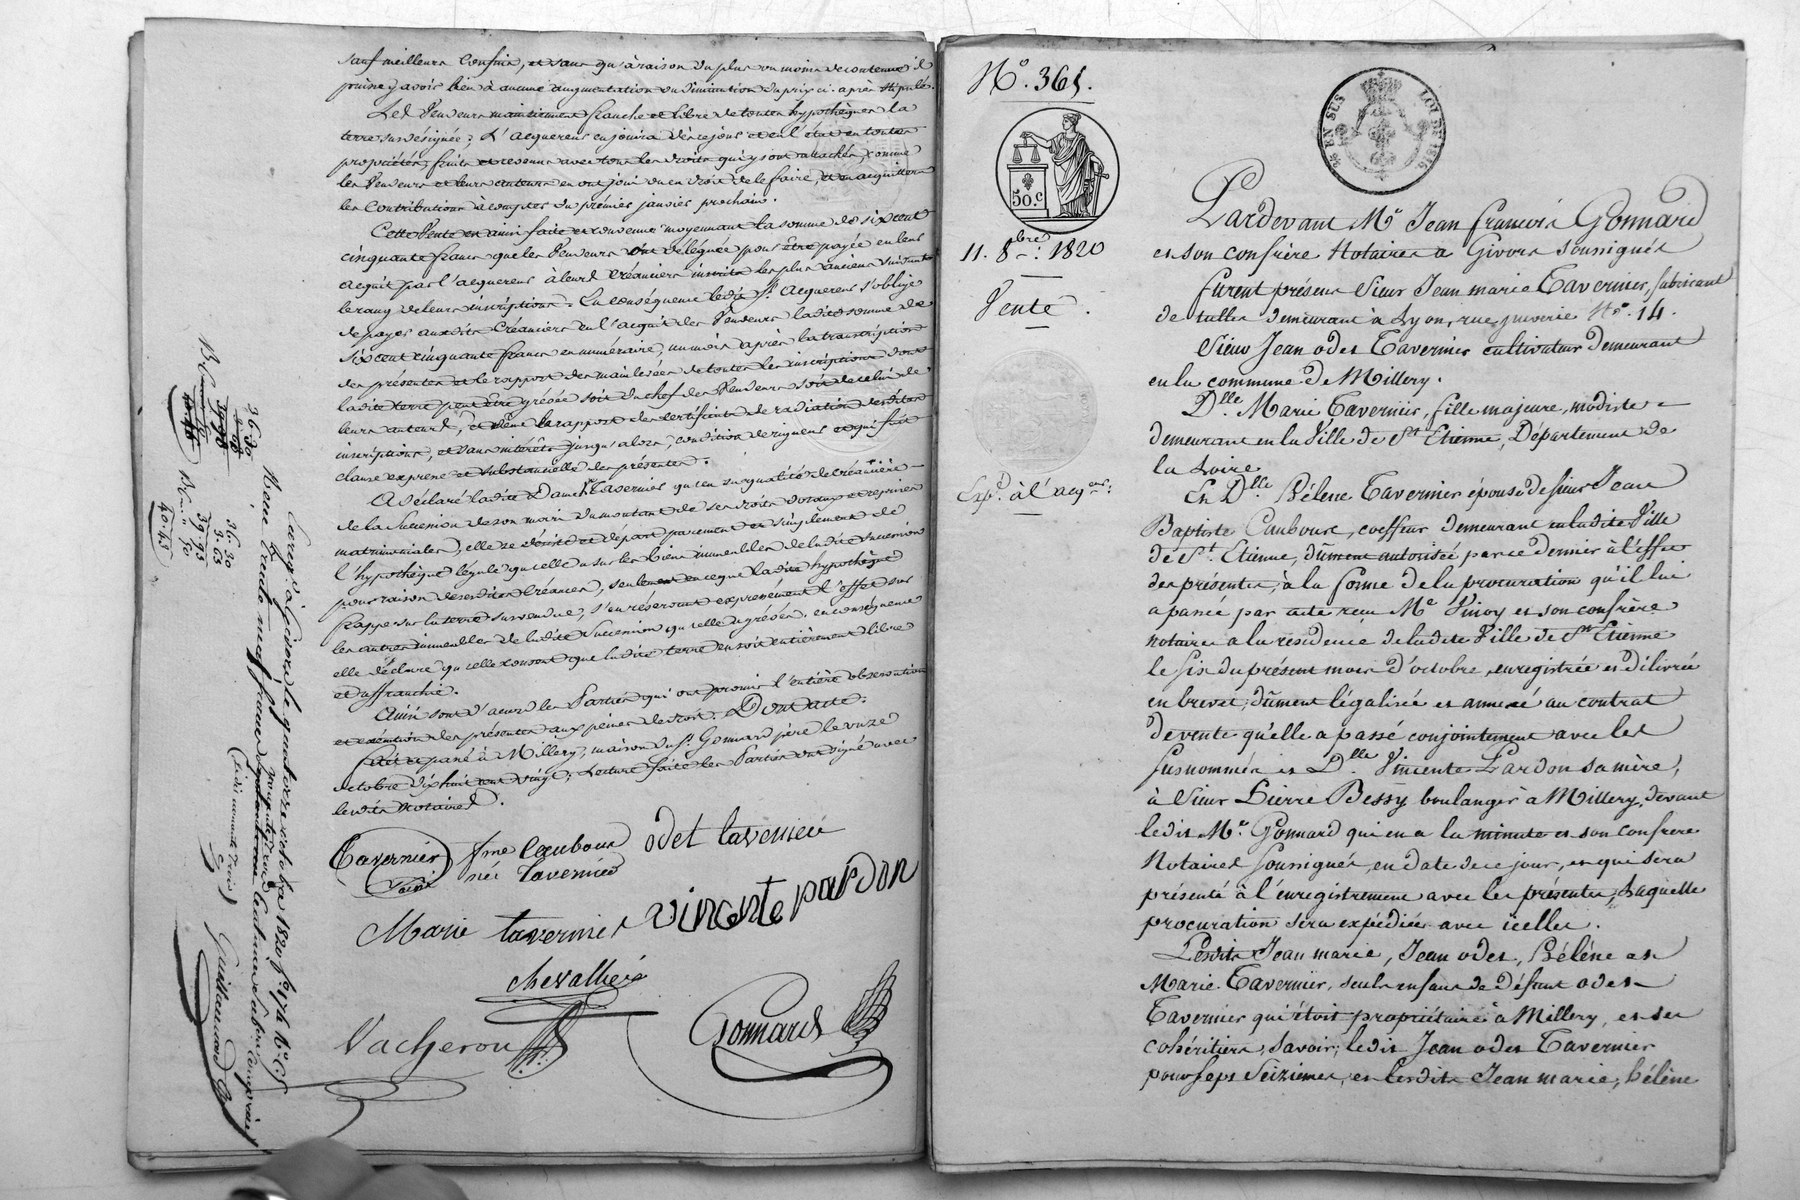 sauf meilleurs confins, et sans qu'à raison du plus ou moins de contenue il
puisse y avoir lieu à aucune augmentation ou diminution du prix ci-après stipulé.
Les Vendeurs maintiennent franche et libre de toutes hypothèques la
terre susdésignée; L'acquereur en jouira dès ce jour et en l'état en toutes
propriétés, fruits et revenus avec tous les droits qui y sont attachés, comme
les Vendeurs et leurs auteurs en ont joui ou eu droit de le faire, et en acquittera
les Contributions à compter du premier janvier prochain.
Cette Vente est ainsi faite et convenue moyennant la somme de six cent
cinquante francs que les Vendeurs ont déléguée pour être payée en leur
acquit par l'acquereur à leurs Créanciers inscrits les plus anciens suivant
le rang de leurs inscriptions. En conséquence ledit Sr. Acquereur s'oblige
de payer auxdits Créanciers en l'acquit des Vendeurs ladite somme de
six cent cinquante francs en numéraire, un mois après la transcription
des présentes et le rapport des mainlevées de toutes les inscriptions dont
ladite terre peut être grévée soit du chef des Vendeurs soit de celui de
leurs auteurs, et même le rapport des certificats de radiation desdites
inscriptions, et sans intérêts jusqu'alors, condition de rigueur et qui fait
clause expresse et substantielle des présentes.
A déclaré ladite Dame Ve Tavernier qu'en sa qualité de créancière
de la Succession de son mari du montant de ses droits dotaux et reprises
matrimoniales, elle se désiste et départ purement et simplement de
l'hypothèque légale qu'elle a sur les biens immeubles de ladite succession
pour raison desdites Créances, seulement en ce que ladite hypothèque
frappe sur la terre susvendue, s'en réservant expressément l'effet sur
les autres immeubles de ladite Succession qu'elle a grévés. en conséquence
elle déclare qu'elle consent que ladite terre en soit entièrement libre
et affranchie.
Ainsi sont d'accord les Parties qui ont promis l'entière observation
et exécution des présentes aux peines de droit. Dont acte.
Fait et passé à Millery, maison du Sr. Gonnard père le onze
octobre dix huit cent vingt; Lecture faite les Parties ont signé avec
lesdits Notaires.
Tavernier fme Caubour odet tavernier
née tavernier
Marie tavernier vincente pardon
chevallier
Vacheron Gonnard
Enreg.é à Givors le quatorze octobre 1820
Reçu trente neuf francs
Guillermard
36.30
3.63
39.93
40.43
N.o 365.
50.c
11. 8bre. 1820
Vente.
Exp.on à l'acqeur.
EN SUS LOI DE 1816
Pardevant Me Jean françois Gonnard
et son confrère Notaires à Givors soussignés
furent présens Sieur Jean marie Tavernier, fabricant
de tulles demeurant à Lyon, rue juiverie No. 14.
Sieur Jean odet Tavernier cultivateur demeurant
en la commune de Millery.
Dlle Marie Tavernier, fille majeure, modiste
demeurant en la Ville de St Etienne, Département de
la Loire
Et Dlle Hélene Tavernier épouse de sieur Jean
Baptiste Caubour, coeffeur demeurant en ladite Ville
de St. Etienne, dûment autorisée par ce dernier à l'effet
des présentes, à la forme de la procuration qu'il lui
a passée par acte reçu Me Vinoy et son confrère
notaire à la résidence de ladite Ville de St Etienne
le six du présent mois d'octobre, enregistrée et délivrée
en brevet, dûment légalisée et annexée au contrat
de vente qu'elle a passé conjointement avec les
susnommés et Dlle Vincente Pardon sa mère,
à Sieur Pierre Bessy boulanger à Millery, devant
ledit Me Gonnard qui en a la minute et son confrere
Notaires soussignés, en date de ce jour, et qui sera
présenté à l'enregistrement avec les présentes, Laquelle
procuration sera expédiée avec icelles.
Lesdits Jean marie, Jean odet, Hélène et
Marie Tavernier, seuls enfans de Défunt odet
Tavernier qui étoit propriétaire à Millery, et ses
cohéritiers, savoir; ledit Jean odet Tavernier
pour sept seizièmes, et lesdits Jean marie, hélène